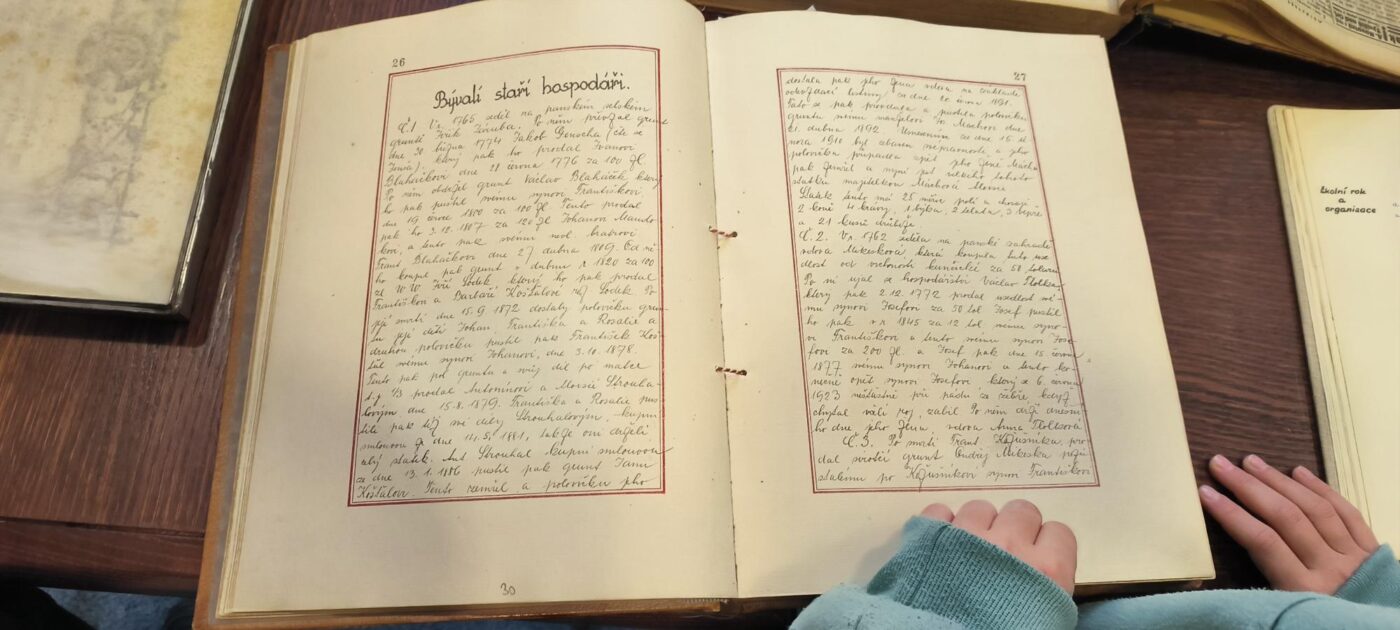 26
Bývalí staří hospodáři.
Č.1 V r. 1765 seděl na panském selském
gruntě Jiřík Záruba. Po něm převzal grunt
dne 30 1774 Jakob Genscha (čte se
který pak ho prodal Ivanovi
Blaháčkovi dne 21 června 1776 za 100 zl.
Po něm obdržel grunt Václav Blaháček, který
ho pak pustil svému synovi Františkovi
dne 19 února 1800 za 100 zl. Tento prodal
pak ho 3.10.1807 za 120 zl. Johanovi
a tento pak svému
Frant. Blaháčkovi dne 27 dubna 1809. Od
ho koupil pak grunt v dubnu r. 1820 za 100
zl. W.W. Jiří Sodek, který ho pak prodal
Františkovi a Barboře Košťálové roz. Sodek. Po
její smrti dne 15.9.1872 dostaly polovičku grun-
tu její děti Johan, Františka a Rosalie a
druhou polovičku pustil pak František Koš-
ťál svému synovi Johanovi, dne 3.10.1878.
Tento pak půl gruntu a svůj díl po matce
t.j. 1/3 prodal Antonínovi a Aloisii Strouha-
lovým dne 15.8.1879. Františka a Rosalie pus-
tili pak též své díly Strouhalovým, kupní
smlouvou dne 14.5.1881, takže oni drželi
celý statek. Ant. Strouhal kupní smlouvou
ze dne 13.1.1886 pustil pak grunt Janu
Košťálovi. Tento zemřel a polovičku jeho
30
27
dostala pak jeho žena vdova na základě
odevzdací listiny ze dne 20 února 1891.
Tato se pak provdala a pustila polovičku
gruntu svému manželovi Fr. Machovi dne
21. dubna 1892. Usnesením ze dne 16 ú-
nora 1910 byl zbaven svéprávnosti a jeho
polovička připadla zpět jeho ženě. Mach
pak zemřel a nyní jest celého tohoto
statku majitelkou Machová Aloisie.
Statek tento má 25 měřic polí a chovají
2 koně 4 krávy, 1 býka, 2 telata, 3 vepře
a 21 kusů drůbeže.
Č.2. V r. 1762 seděla na panské zahradě
vdova Mikesková, která koupila tuto use-
dlost od vrchnosti kunčické za 50 tolarů
Po ní ujal se hospodářství Václav
který pak 2.12.1772 prodal usedlost své-
mu synovi Josefovi za 50 tol. Josef pustil
ho pak v r. 1845 za 12 tol. svému syno-
vi Františkovi a tento svému synovi Jose-
fovi za 200 zl. a Josef pak dne 15 června
1877 svému synovi Johanovi a tento ko-
nečně opět synovi Josefovi, který se 6. června
1923 nešťastně při pádu ze žebře, když
chystal včelí roj, zabil. Po něm drží dnešní-
ho dne jeho žena, vdova Anna
Č.3. Po smrti Frant. Kožušníka, pro-
dal sirotčí grunt Ondřej Mikeska
stalému po Kožušníkovi synovi Františkovi
Školní rok
a
organizace